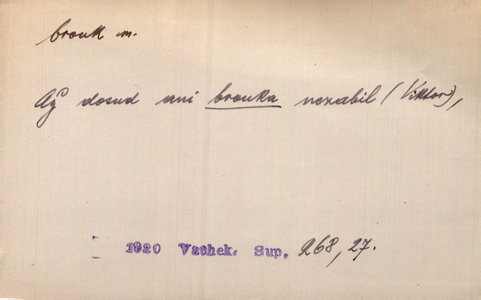 brouk m.
Až dosud ani brouka nezabil (Viktor),
1920 Vachek, Sup, 268, 27.